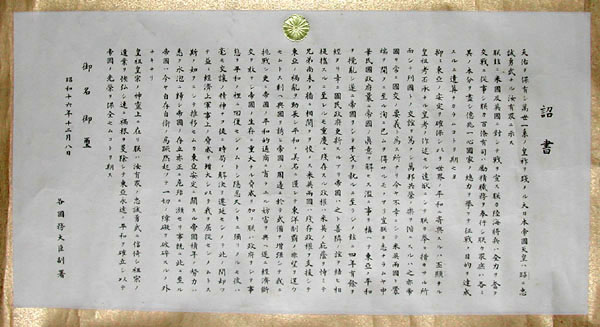 詔書
天佑ヲ保有シ萬世一系ノ皇祚ヲ踐メル大日本帝國天皇ハ昭ニ忠
誠勇武ナル汝有衆ニ示ス
朕茲ニ米國及英國ニ對シテ戰ヲ宣ス朕カ陸海將兵ハ全力ヲ奮テ
交戰ニ從事シ朕カ百僚有司ハ勵精職務ヲ奉行シ朕カ衆庶ハ各々
其ノ本分ヲ盡シ億兆一心國家ノ總力ヲ擧ケテ征戰ノ目的ヲ達成
スルニ遺算ナカラムコトヲ期セヨ
抑々東亞ノ安定ヲ確保シ以テ世界ノ平和ニ寄與スルハ丕顯ナル
皇祖考丕承ナル皇考ノ作述セル遠猷ニシテ朕カ拳々措カサル所
而シテ列國トノ交誼ヲ篤クシ萬邦共榮ノ樂ヲ偕ニスルハ之亦帝
國カ常ニ國交ノ要義ト爲ス所ナリ今ヤ不幸ニシテ米英兩國ト釁
端ヲ開クニ至ル洵ニ已ムヲ得サルモノアリ豈朕カ志ナラムヤ中
華民國政府曩ニ帝國ノ眞意ヲ解セス濫ニ事ヲ構ヘテ東亞ノ平和
ヲ攪亂シ遂ニ帝國ヲシテ干戈ヲ執ルニ至ラシメ茲ニ四年有餘ヲ
經タリ幸ニ國民政府更新スルアリ帝國ハ之ト善隣ノ誼ヲ結ヒ相
提攜スルニ至レルモ重慶ニ殘存スル政權ハ米英ノ庇蔭ヲ恃ミテ
兄弟尚未タ牆ニ相鬩クヲ悛メス米英兩國ハ殘存政權ヲ支援シテ
東亞ノ禍亂ヲ助長シ平和ノ美名ニ匿レテ東洋制覇ノ非望ヲ逞ウ
セムトス剩ヘ與國ヲ誘ヒ帝國ノ周邊ニ於テ武備ヲ增強シテ我ニ
挑戰シ更ニ帝國ノ平和的通商ニ有ラユル妨害ヲ與ヘ遂ニ經濟斷
交ヲ敢テシ帝國ノ生存ニ重大ナル脅威ヲ加フ朕ハ政府ヲシテ事
態ヲ平和ノ裡ニ囘復セシメムトシ隱忍久シキニ彌リタルモ彼ハ
毫モ交讓ノ精神ナク徒ニ時局ノ解決ヲ遷延セシメテ此ノ間却ツ
テ益々經濟上軍事上ノ脅威ヲ增大シ以テ我ヲ屈從セシメムトス
斯ノ如クニシテ推移セムカ東亞安定ニ關スル帝國積年ノ努力ハ
悉ク水泡ニ歸シ帝國ノ存立亦正ニ危殆ニ瀕セリ事既ニ此ニ至ル
帝國ハ今ヤ自存自衞ノ爲蹶然起ツテ一切ノ障礙ヲ破碎スルノ外
ナキナリ
皇祖皇宗ノ神靈上ニ在リ朕ハ汝有衆ノ忠誠勇武ニ信倚シ祖宗ノ
遺業ヲ恢弘シ速ニ禍根ヲ芟除シテ東亞永遠ノ平和ヲ確立シ以テ
帝國ノ光榮ヲ保全セムコトヲ期ス
御名御璽
昭和十六年十二月八日
各國務大臣副署